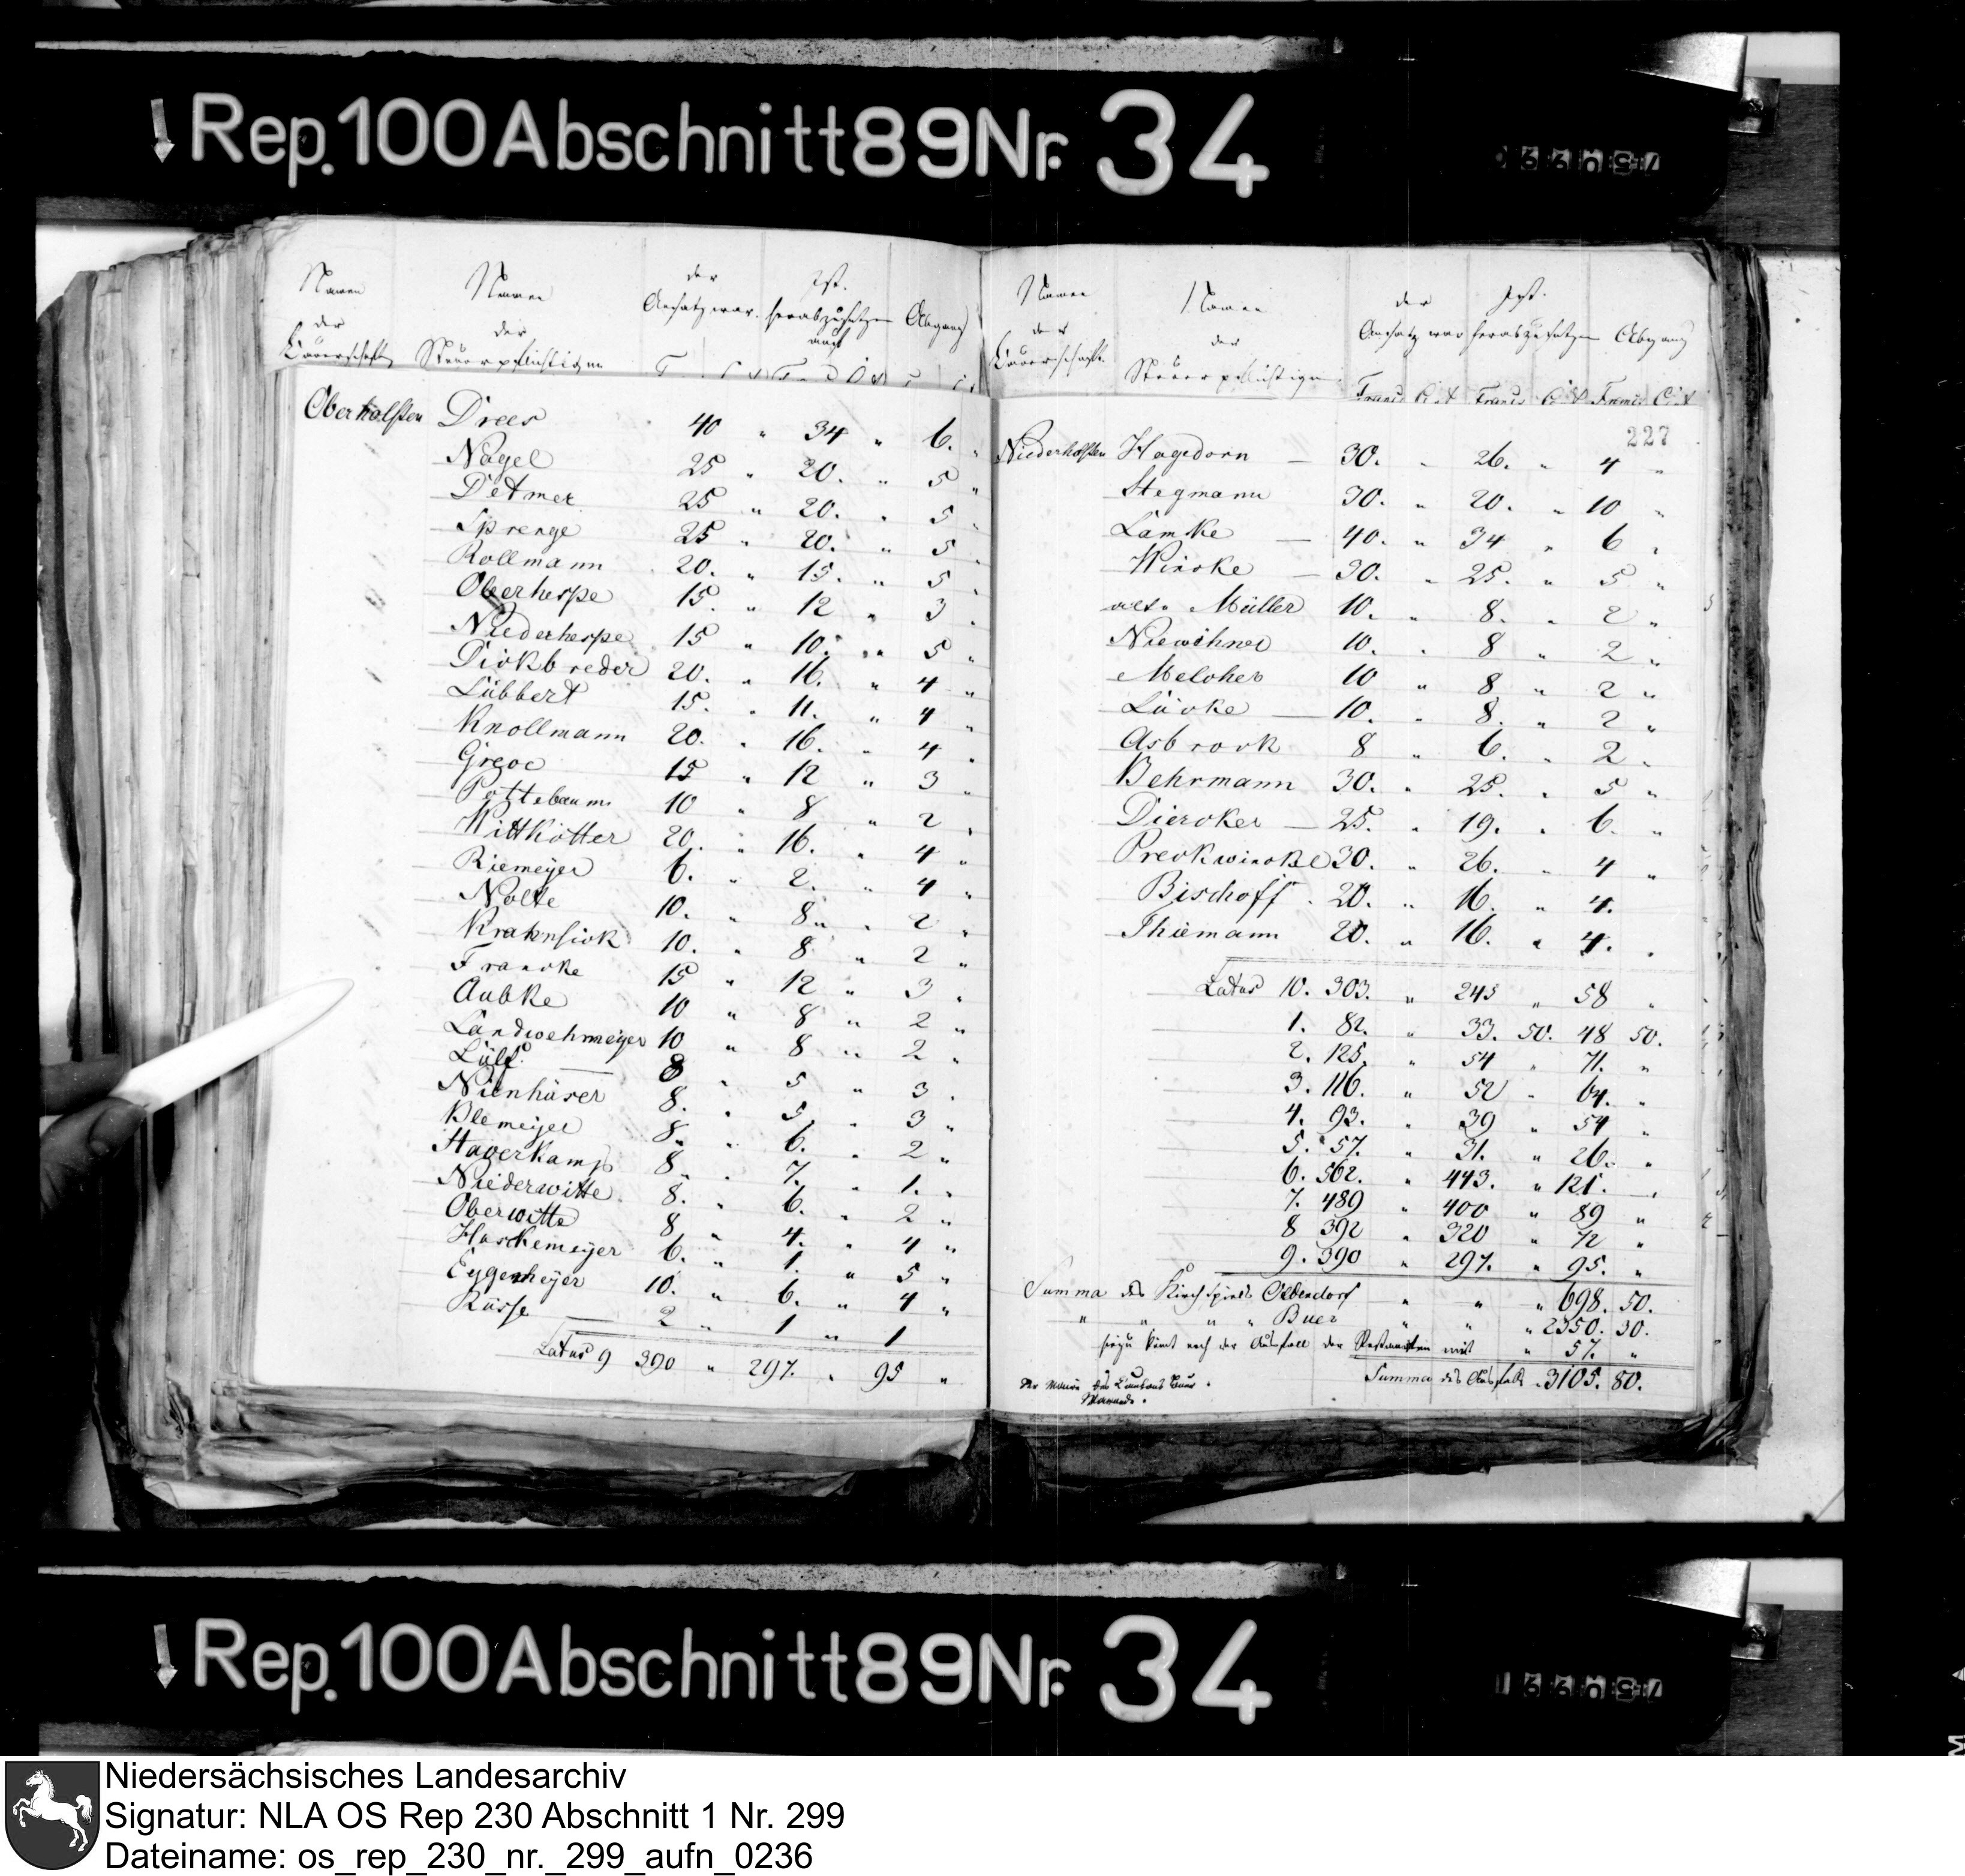 Rep. 100 Abschnitt 89 Nr. 34
Namen der Bauerschaft Namen der Steuerpflichtigen der Ansatz war. Ist. herabzusetzen auf Abgang
Oberholsten Drees 40 " 34 " 6. "
Nagel 25 " 20. " 5 "
Detmer 25 " 20. " 5 "
Sprenge 25 " 20. " 5 "
Kollmann 20. " 15. " 5 "
Oberhespe 15. " 12 " 3 "
Niederhespe 15 " 10. " 5 "
Dickbreder 20. " 16. " 4 "
Lübbert 15. " 11. " 4 "
Knollmann 20. " 16. " 4 "
Greve 15 " 12 " 3 "
Pottebaum 10 " 8 " 2 "
Wittkötter 20. " 16. " 4 "
Riemeyer 6. " 2. " 4 "
Nolte 10. " 8 " 2 "
Krahnsick 10. " 8 " 2 "
Francke 15 " 12 " 3 "
Aubke 10 " 8 " 2 "
Landwehrmeyer 10 " 8 " 2 "
Lülf. 8 " 5 " 3 "
Nienhüser 8. " 5. " 3 "
Blemeyer 8 " 6. " 2 "
Haverkamp 8 " 7. " 1. "
Niederwitte 8. " 6. " 2 "
Oberwitte 8 " 4. " 4 "
Haskemeyer 6. " 1. " 5 "
Eggemeyer 10. " 6. " 4 "
Küsse 2 " 1 " 1
Latus 9 390 " 297. " 95 "
Namen der Bauerschaft. Namen der Steuerpflichtigen der Ansatz war Ist. herabzusetzen Abgang
Francs Cent Francs Cent Francs Cent
227
Niederholsten Hagedorn — 30. " 26. " 4 "
Stegmann 30. " 20. " 10 "
Lamke — 40. " 34 " 6 "
Wincke — 30. " 25. " 5 "
Müller 10. " 8. " 2 "
Niewöhner 10. " 8 " 2 "
Melcher 10 " 8 " 2 "
Lücke — 10. " 8. " 2 "
Asbrock 8 " 6. " 2 "
Behrmann 30. " 25. " 5 "
Diercker — 25. " 19. " 6. "
Preckwincke 30. " 26. " 4 "
Bischoff . 20. " 16. " 4.
Thiemann 20. " 16. " 4. "
Latus 10. 303. " 245 " 58 "
1. 82. " 33. 50. 48 50.
2. 125. " 54 " 71. "
3. 116. " 52 " 64. "
4. 93. " 39 " 54 "
5. 57. " 31. " 26. "
6. 562. " 443. " 121. "
7. 489 " 400 " 89 "
8 392 " 320 " 72 "
9. 390 " 297. " 95. "
Summa des Kirchspiels Oldendorf " " " 698. 50.
" " " " Buer " " " 2350. 30.
hiezu kömt noch der Ausfall der mit " 57. "
Summa des Ausfalls 3105. 80.
Der Maire des Cantons Buer
Rep. 100 Abschnitt 89 Nr. 34
Niedersächsisches Landesarchiv
Signatur: NLA OS Rep 230 Abschnitt 1 Nr. 299
Dateiname: os_rep_230_nr._299_aufn_0236